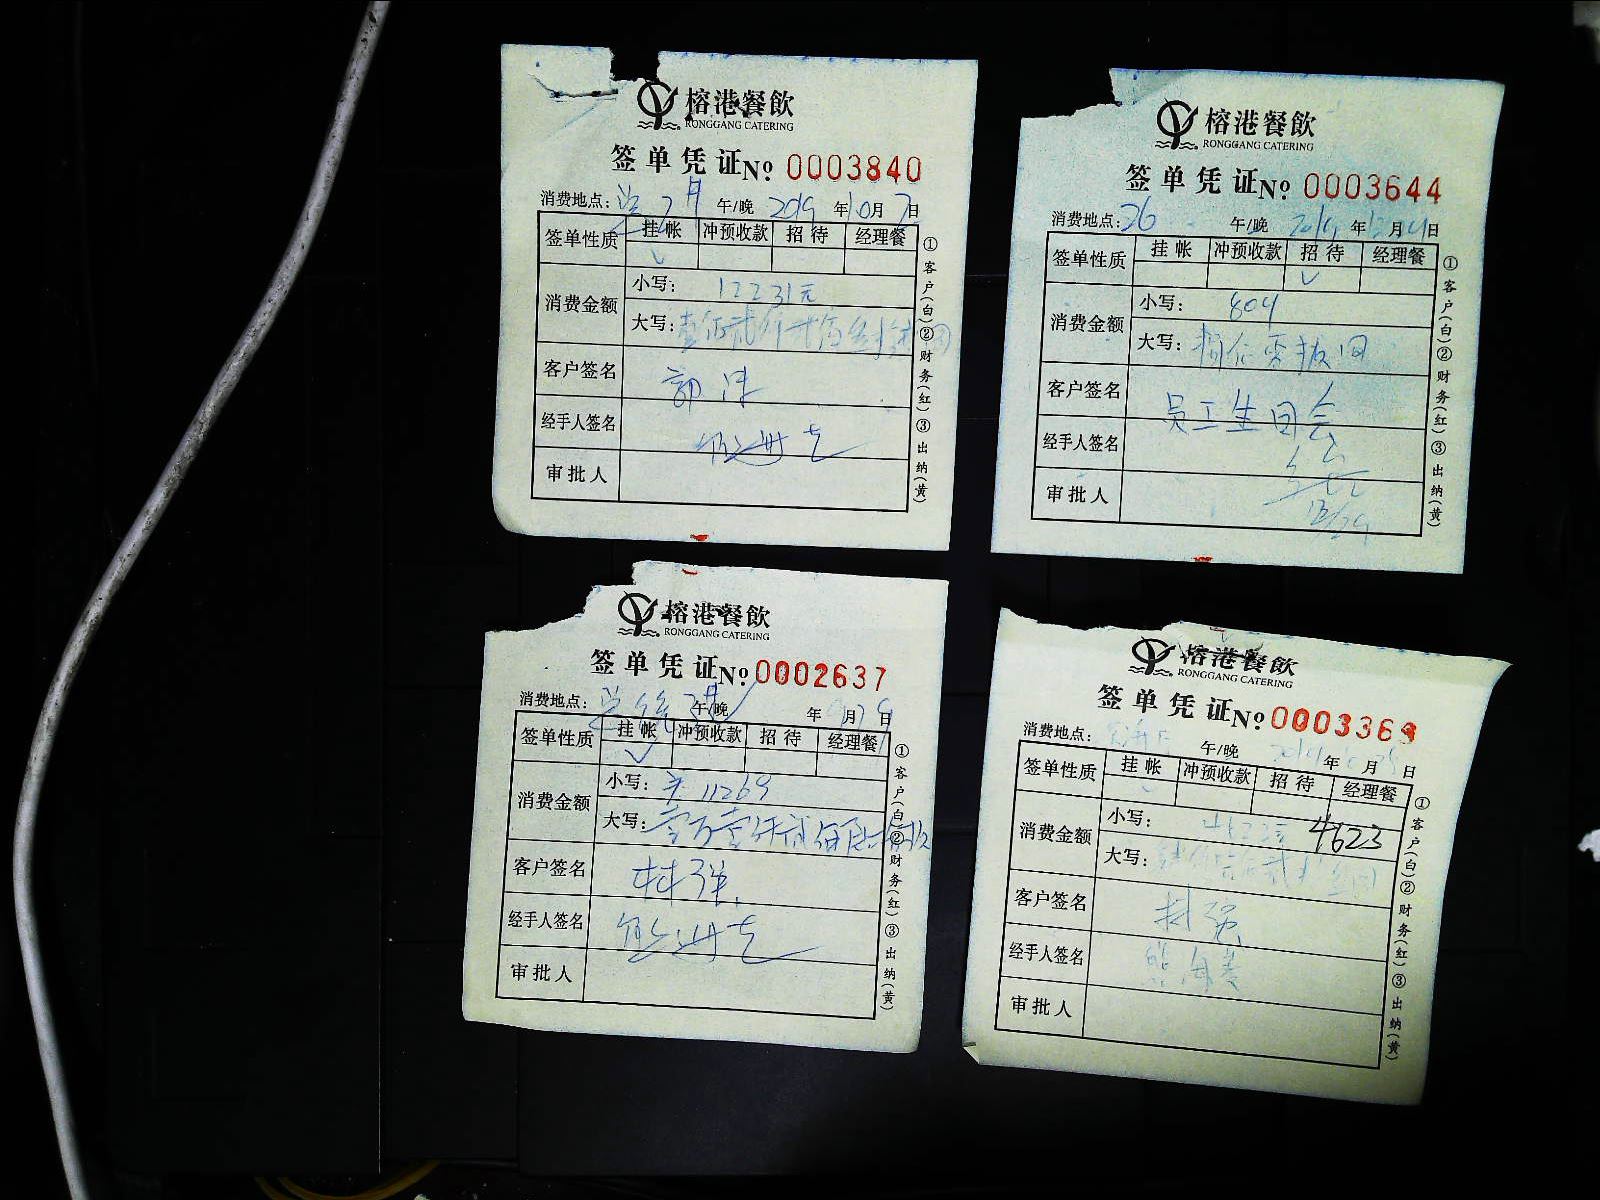 榕港餐飲
RONGGANG CATERING
签单凭证№ 0003840
消费地点： 午/晚 2019 年 10 月 7 日
签单性质 挂帐 冲预收款 招待 经理餐
✓
消费金额 小写： 12231元
大写：
客户签名
经手人签名
审批人
①客户(白)②财务(红)③出纳(黄)
榕港餐飲
RONGGANG CATERING
签单凭证№ 0003644
消费地点：26 午/晚 2019 年 月 日
签单性质 挂帐 冲预收款 招待 经理餐
✓
消费金额 小写： 804
大写：捌佰零肆圆
客户签名 员工生日会
经手人签名
审批人
①客户(白)②财务(红)③出纳(黄)
榕港餐飲
RONGGANG CATERING
签单凭证№ 0002637
消费地点： 午/晚 年 月 日
签单性质 挂帐 冲预收款 招待 经理餐
✓
消费金额 小写： 11269
大写：壹万壹仟贰佰陆
客户签名 林强
经手人签名
审批人
①客户(白)②财务(红)③出纳(黄)
榕港餐飲
RONGGANG CATERING
签单凭证№ 0003363
消费地点： 午/晚 年 月 日
签单性质 挂帐 冲预收款 招待 经理餐
消费金额 小写： 4623
大写：
客户签名 林强
经手人签名
审批人
①客户(白)②财务(红)③出纳(黄)